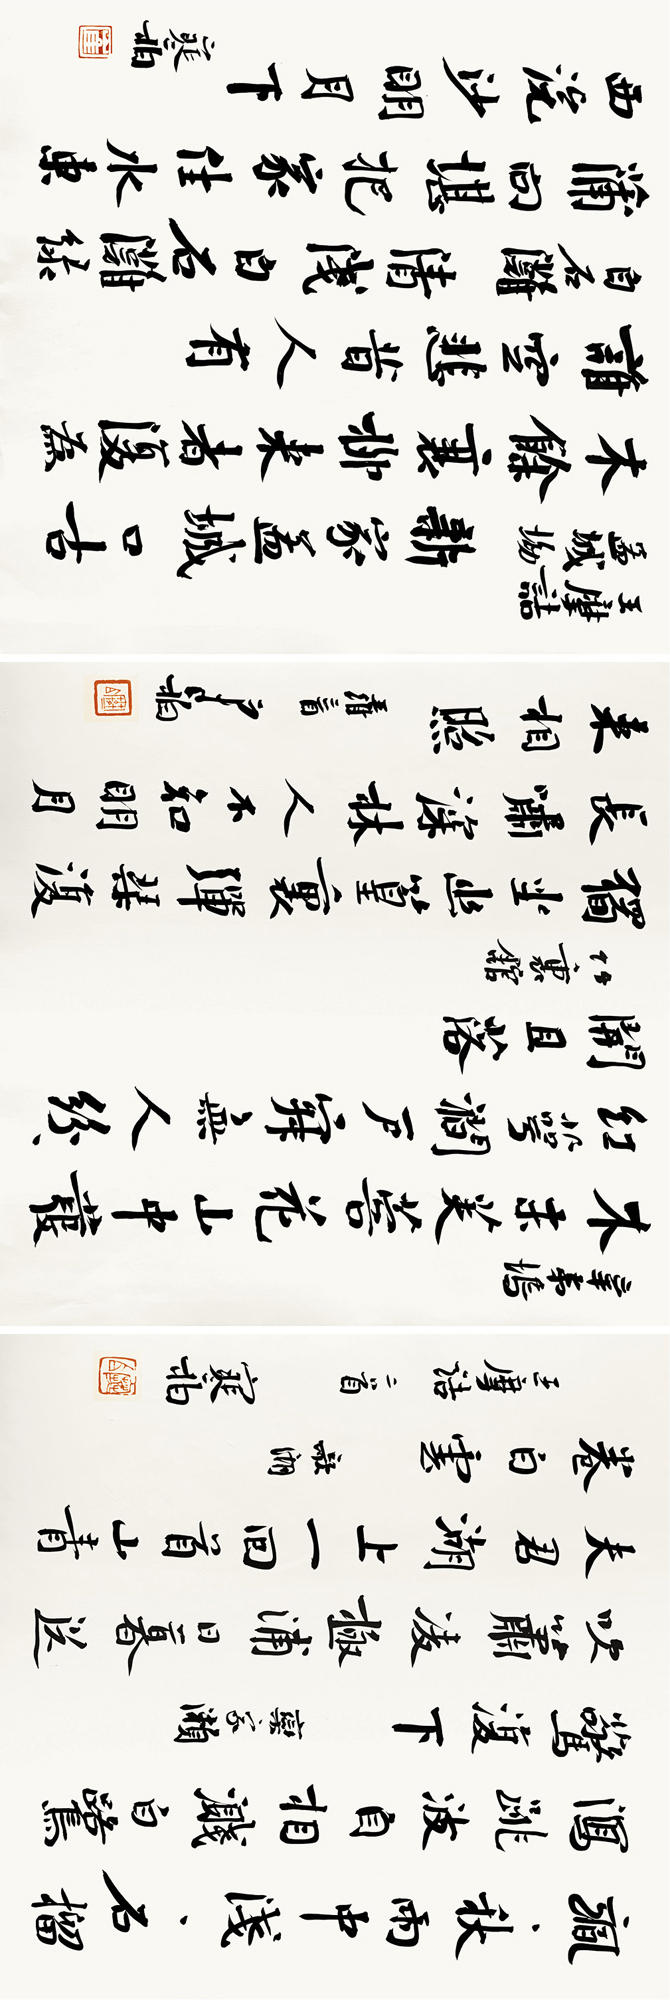 颯、秋雨中淺、石榴
瀉跳波自相濺白鷺
驚復下 欒家瀨
吹簫凌極浦日暮送
夫君湖上一回首山青
卷白雲 欹湖
王摩詰 二首 寒柏
辛夷塢
木末芙蓉花山中發
紅萼澗戶寂無人紛、
開且落
竹裏館
獨坐幽篁裏彈琴復
長嘯深林人不知明月
來相照
王摩詰
孟城坳 新家孟城口古
木餘衰柳來者復為
誰空悲昔人有
白石灘 清淺白石灘綠
蒲向堪把家住水東
西浣沙明月下
寒柏